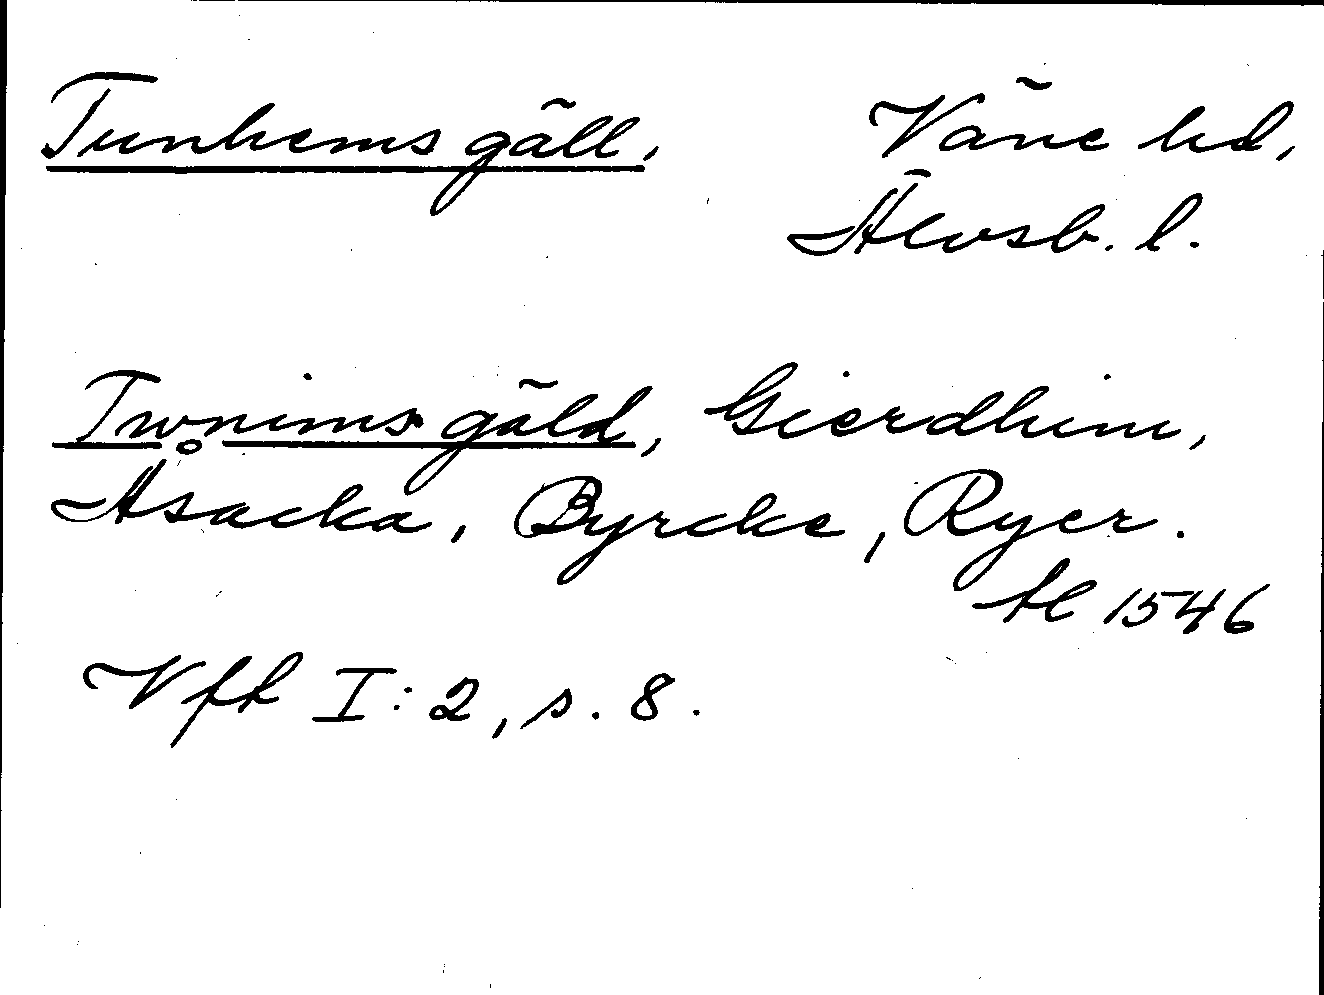 Tunhems gäll, Väne hd,
Älvsb. l.
Twnims gäld, Gierdhim,
Åsacka, Byrcke, Ryer.
tl 1546
Vft I:2, s. 8.